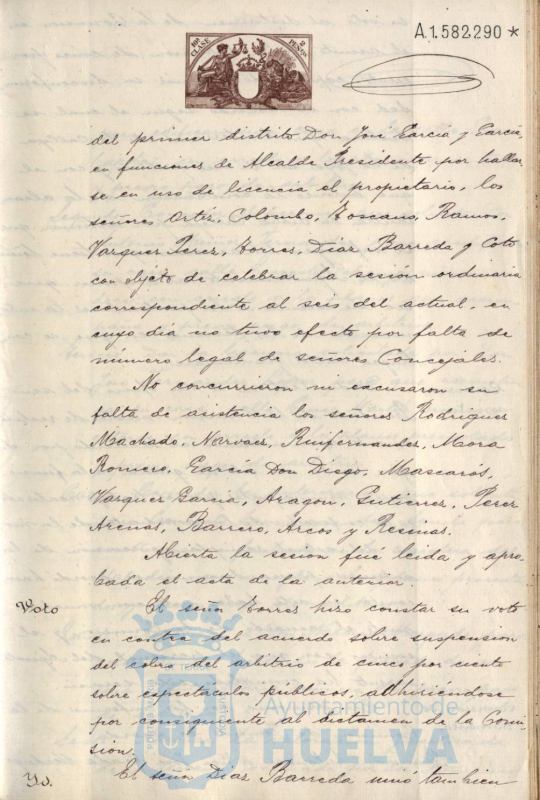 10ª CLASE
2 PESETAS
A.1.582.290 *
del primer distrito Don José García y García,
en funciones de Alcalde Presidente por hallar-
se en uso de licencia el propietario, los
señores Ortiz, Colombo, Toscano, Ramos,
Vazquez Perez, Torres, Diaz Barreda y Coto
con objeto de celebrar la sesión ordinaria
correspondiente al seis del actual, en
cuyo dia no tuvo efecto por falta de
número legal de señores Concejales.
No concurrieron ni excusaron su
falta de asistencia los señores Rodriguez
Machado, Narvaez, Ruifernandez, Mora
Romero, García Don Diego, Mascarós,
Vazquez García, Aragon, Gutierrez, Perez
Arenas, Barrero, Arcos y Resinas.
Abierta la sesion fué leida y apro-
bada el acta de la anterior.
Voto
El señor Torres hizo constar su voto
en contra del acuerdo sobre suspension
del cobro del arbitrio de cinco por ciento
sobre espectáculos públicos, adhiriéndose
por consiguiente al dictamen de la Comi-
sion.
Yd.
El señor Diaz Barreda unió tambien
Ayuntamiento de
HUELVA